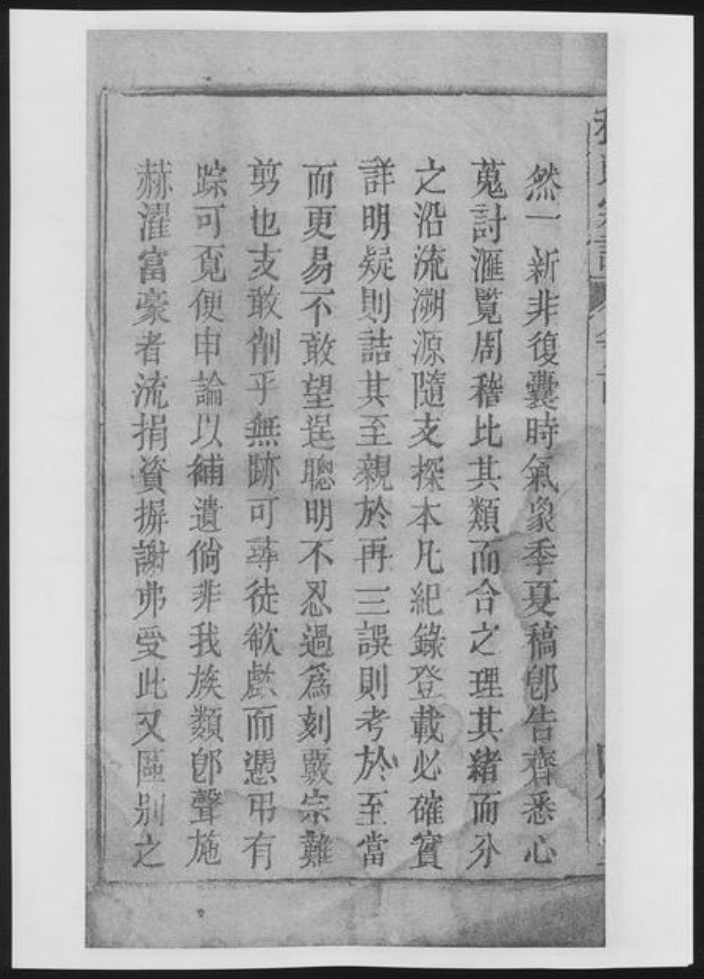 然一新非復曩時氣象季夏稿卽告齊悉心
蒐討滙覽周稽比其類而合之理其緒而分
之沿流溯源隨支探本凡紀錄登載必確實
詳明疑則詰其至親於再三誤則考於至當
而更易不敢望逞聰明不忍過為刻覈宗難
剪也支敢削乎無跡可尋徒欷歔而憑弔有
踪可覓便申論以補遺倘非我族類卽聲施
赫濯富豪者流捐資摒謝弗受此又區別之